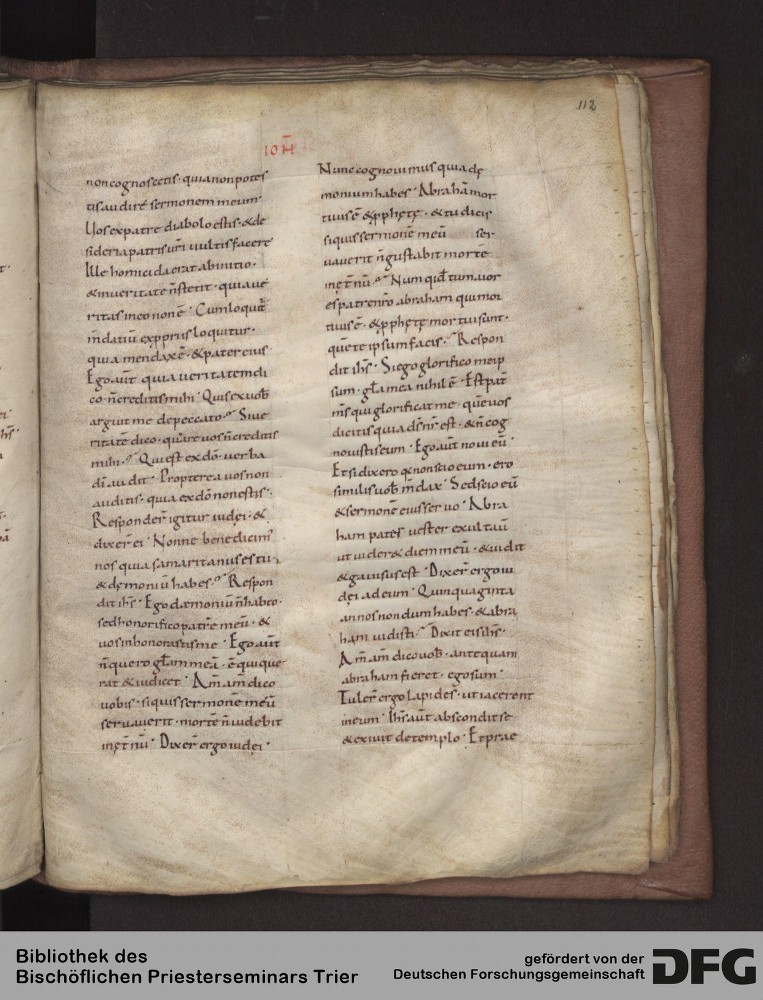 112
IOH̅
non cognoscetis · quia non potes
tis audire sermonem meum ·
Uos ex patre diabolo estis · & de
sideria patris ur̅i uultis facere
Ille homicida erat ab initio ·
& in ueritate n̅ stetit · quia ue
ritas in eo non e̅ · Cum loquit̅
m̅daciu̅ ex p̱priis loquitur ·
quia mendax e̅ · & pater eius
Ego aut̅ quia ueritatem di
co · n̅ creditis mihi · Quis ex uob̅
arguit me de peccato · Si ue
ritate̅ dico · quare uos n̅ creditis
mihi · Qui est ex do̅ · uerba
di̅ audit · Propterea uos non
auditis · quia ex do̅ non estis ·
Responder̅ igitur iudei · &
dixer̅ ei · Nonne bene dicim'
nos quia samaritanus es tu
& dęmoniu̅ habes · Respon
dit ih̅s · Ego dæmoniu̅ n̅ habeo ·
sed honorifico patre̅ meu̅ · &
uos inhonorastis me · Ego aut̅
n̅ quero gl̅am mea̅ · e̅ qui que
rat & iudicet · Am̅ am̅ dico
uobis · si quis sermone̅ meu̅
seruauerit · morte̅ n̅ uidebit
in ęt̅nu̅ · Dixer̅ ergo iudei ·
Nunc cognouimus quia dę
monium habes · Abraha̅ mor
tuus e̅ & p̱phętę · & tu dicis
si quis sermone̅ meu̅ ser
uauerit n̅ gustabit morte̅
in ęt̅nu̅ · Numquid tu maior
es patre nr̅o abraham qui mor
tuus e̅ · & p̱phętę mortui sunt ·
que̅ te ipsum facis · Respon
dit ih̅s · Si ego glorifico meip
sum · gl̅a mea nihil e̅ · Est pat̅
m̅s qui glorificat me · que̅ uos
dicitis quia ds̅ nr̅ est · & n̅ cog
nouistis eum · Ego aut̅ noui eu̅ ·
Et si dixero q̅ non scio eum · ero
similis uob̅ m̅dax · Sed scio eu̅
& sermone̅ eius seruo · Abra
ham pater uester exultau̅
ut uider& diem meu̅ · & uidit
& gauisus est · Dixer̅ ergo iu
dęi ad eum · Quinquaginta
annos nondum habes · & abra
ham uidisti · Dixit eis ih̅s ·
Am̅ am̅ dico uob̅ · antequam
abraham fieret · ego sum ·
Tuler̅ ergo lapides · ut iacerent
in eum · Ih̅s aut̅ abscondit se
& exiuit de templo · Et prae
Bibliothek des
Bischöflichen Priesterseminars Trier
gefördert von der
Deutschen Forschungsgemeinschaft
DFG